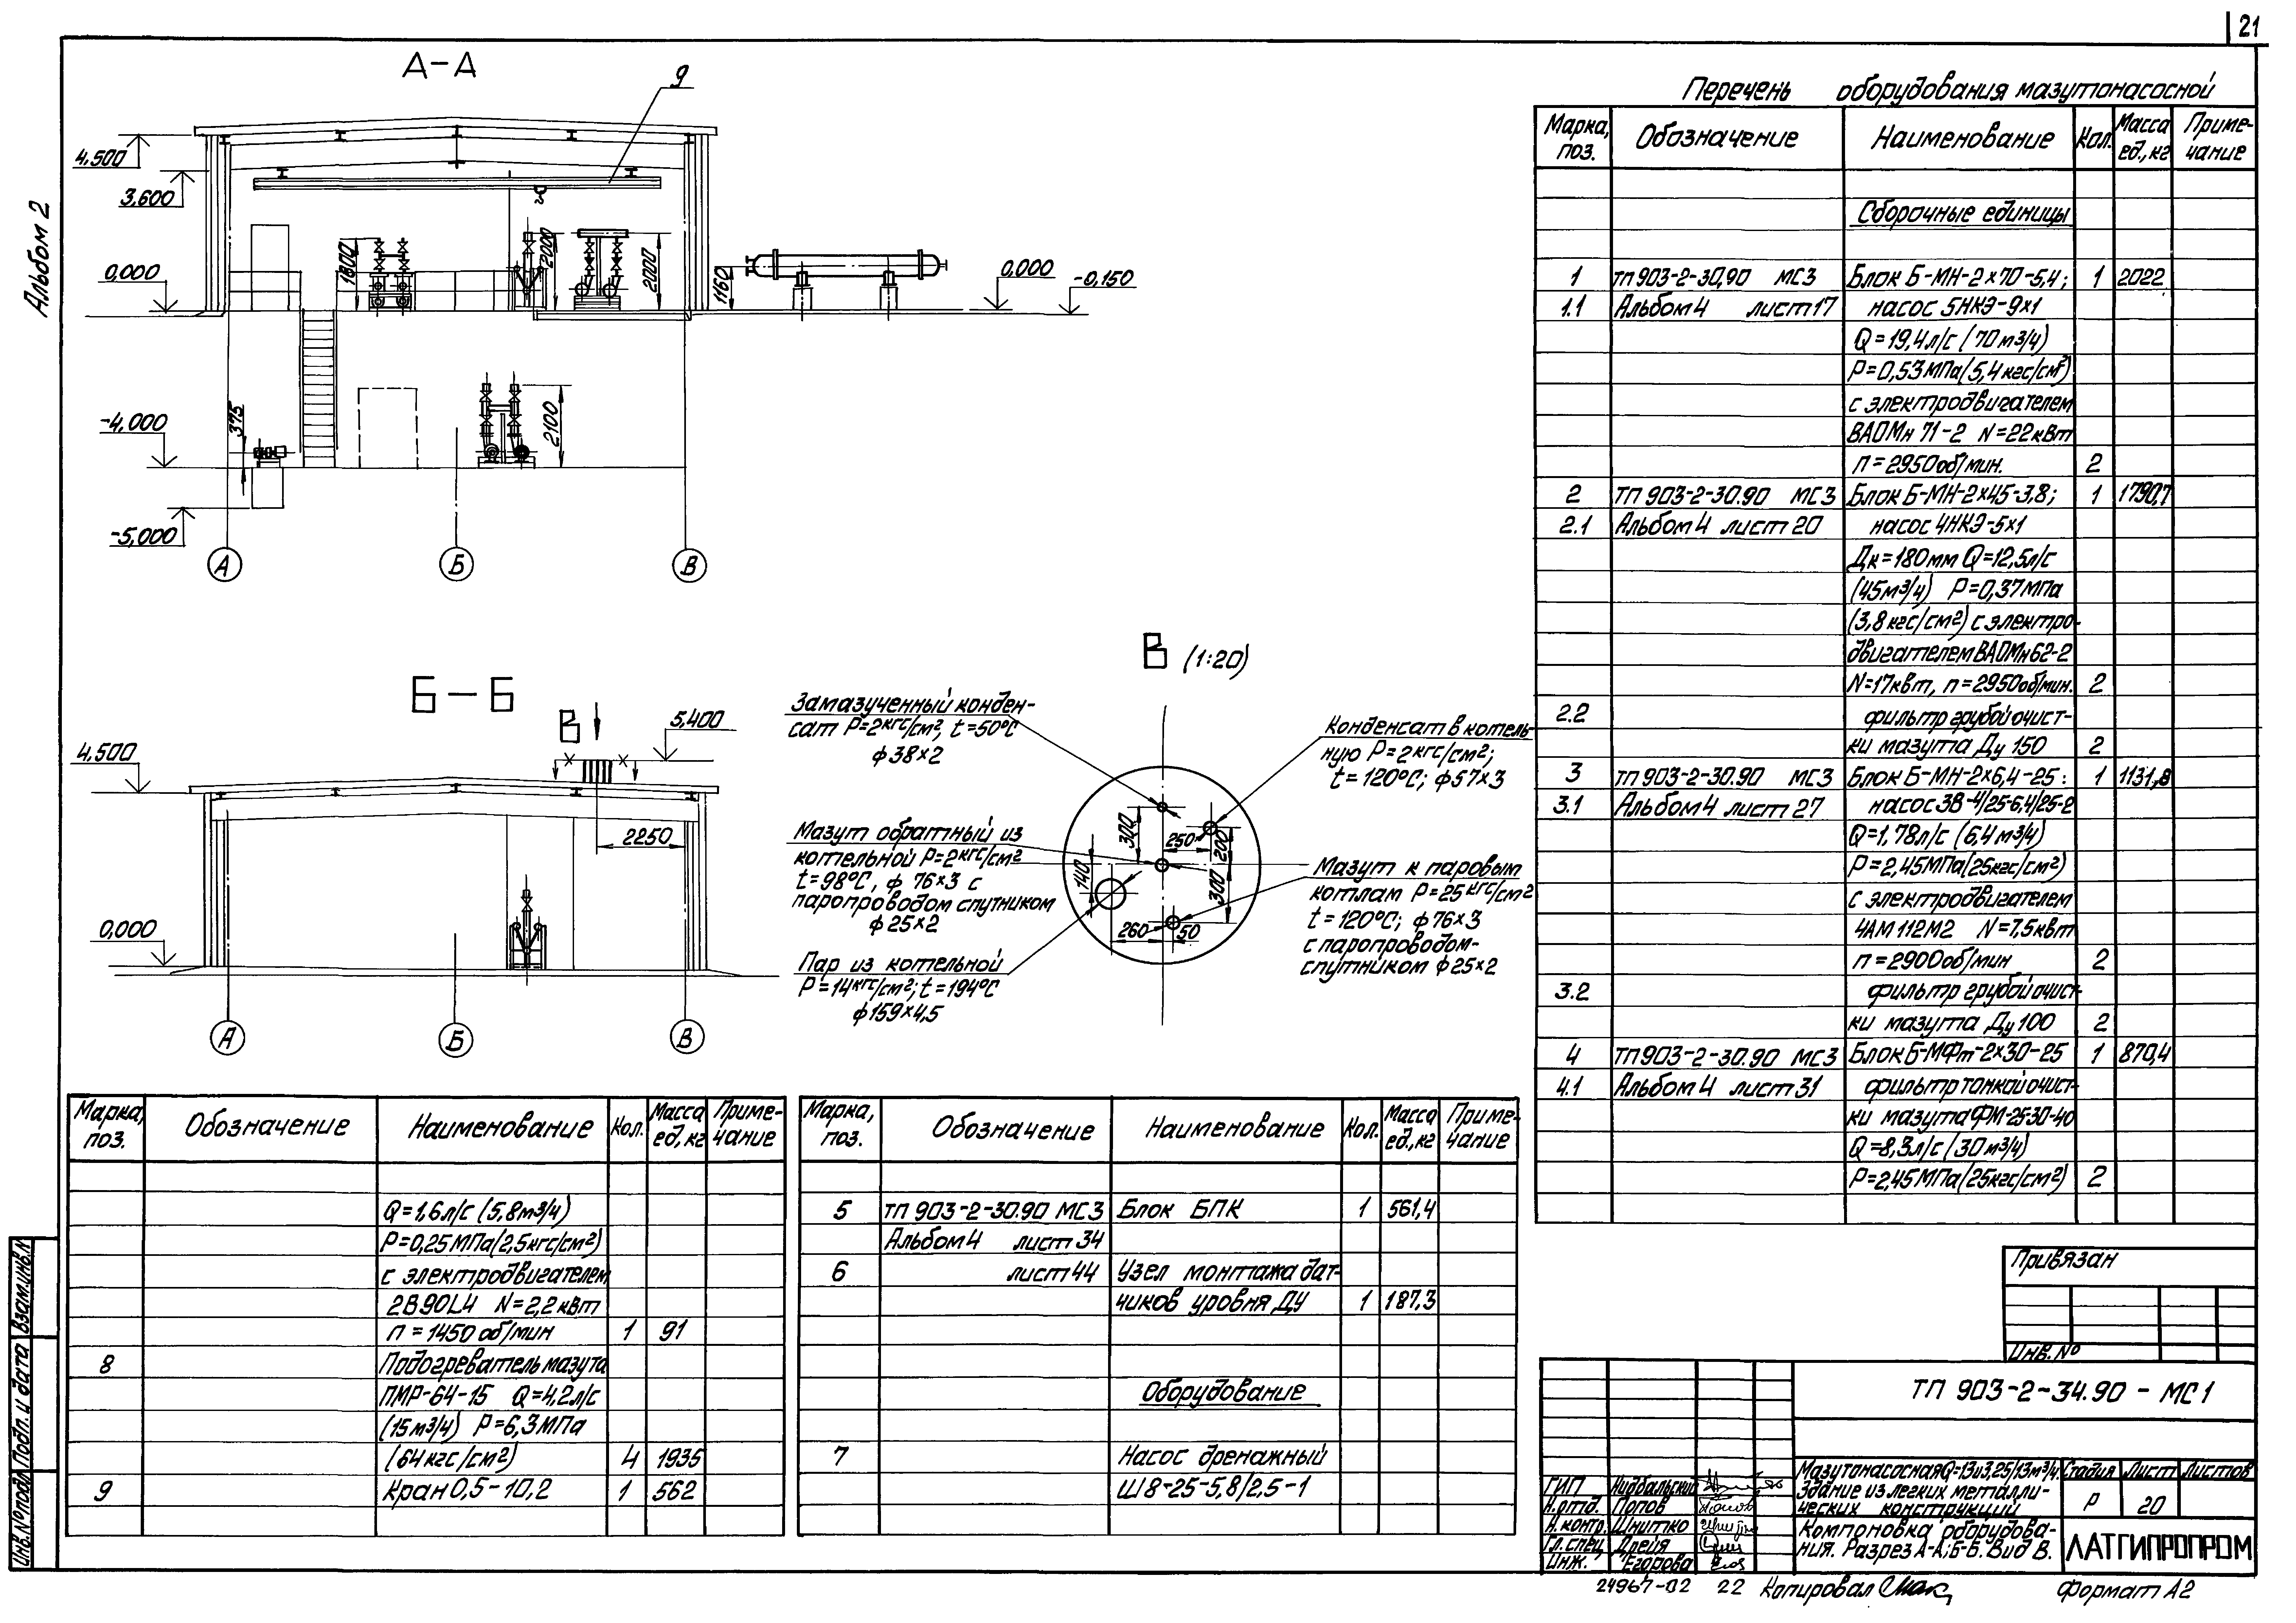 21
Альбом 2
А-А
9
4,500
3,600
0,000
1800
2000
2000
1160
0,000
-0,150
-4,000
375
2100
-5,000
А
Б
В
Б-Б
В
5,400
4,500
2250
0,000
А
Б
В
В (1:20)
Замазученный конден-
сат Р=2кгс/см², t=50°С
ф38×2
Мазут обратный из
котельной Р=2кгс/см²
t=98°С, ф 76×3 с
паропроводом спутником
ф25×2
Пар из котельной
Р=14кгс/см²; t=194°С
ф159×4,5
Конденсат в котель-
ную Р=2кгс/см²;
t=120°С; ф57×3
Мазут к паровым
котлам Р=25кгс/см²
t=120°С; ф76×3
с паропроводом-
спутником ф25×2
300
250
200
140
300
260
50
Перечень оборудования мазутонасосной
Марка, поз. Обозначение Наименование Кол. Масса ед., кг Приме-чание
Сборочные единицы
1 ТП 903-2-30,90 МС3 Блок Б-МН-2×70-5,4; 1 2022
1.1 Альбом 4 лист 17 насос 5НКЭ-9×1
Q=19,4л/с (70м³/ч)
Р=0,53МПа(5,4кгс/см²)
с электродвигателем
ВАОМн 71-2 N=22кВт
п=2950об/мин. 2
2 ТП 903-2-30.90 МС3 Блок Б-МН-2×45-3,8; 1 1790,7
2.1 Альбом 4 лист 20 насос 4НКЭ-5×1
Дк=180мм Q=12,5л/с
(45м³/ч) Р=0,37МПа
(3,8кгс/см²) с электро-
двигателем ВАОМн62-2
N=17квт, п=2950об/мин. 2
2.2 фильтр грубой очист-
ки мазута Ду 150 2
3 ТП 903-2-30.90 МС3 Блок Б-МН-2×6,4-25: 1 1131,8
3.1 Альбом 4 лист 27 насос 3В-4/25-6,4/25-2
Q=1,78л/с (6,4м³/ч)
Р=2,45МПа(25кгс/см²)
с электродвигателем
4АМ112М2 N=7,5квт
п=2900об/мин 2
3.2 фильтр грубой очист-
ки мазута Ду100 2
4 ТП 903-2-30.90 МС3 Блок Б-МФт-2×30-25 1 870,4
4.1 Альбом 4 лист 31 фильтр тонкой очист-
ки мазута ФМ-25-30-40
Q=8,3л/с (30м³/ч)
Р=2,45МПа(25кгс/см²) 2
Марка, поз. Обозначение Наименование Кол. Масса ед., кг Приме-чание
Q=1,6л/с (5,8м³/ч)
Р=0,25МПа(2,5кгс/см²)
с электродвигателем
2В90L4 N=2,2квт
п=1450об/мин 1 91
8 Подогреватель мазута
ПМР-64-15 Q=4,2л/с
(15м³/ч) Р=6,3МПа
(64кгс/см²) 4 1935
9 Кран 0,5-10,2 1 562
Марка, поз. Обозначение Наименование Кол. Масса ед., кг Приме-чание
5 ТП 903-2-30.90 МС3 Блок БПК 1 561,4
Альбом 4 лист 34
6 лист 44 Узел монтажа дат-
чиков уровня ДУ 1 187,3
Оборудование
7 Насос дренажный
Ш8-25-5,8/2,5-1
Привязан
Инв. №
ТП 903-2-34.90 - МС1
Мазутонасосная Q=13и3,25/13м³/ч
Здание из легких металли-
ческих конструкций
Стадия Лист Листов
Р 20
Компоновка оборудова-
ния. Разрез А-А; Б-Б. Вид В.
ЛАТГИПРОПРОМ
ГИП Нидбальский
Н.отд. Попов
Н.контр. Шнитко
Гл.спец Дрейя
Инж. Егорова
24967-02 22 Копировал Формат А2
Взам.инв.N
Подп. и дата
Инв.№подл